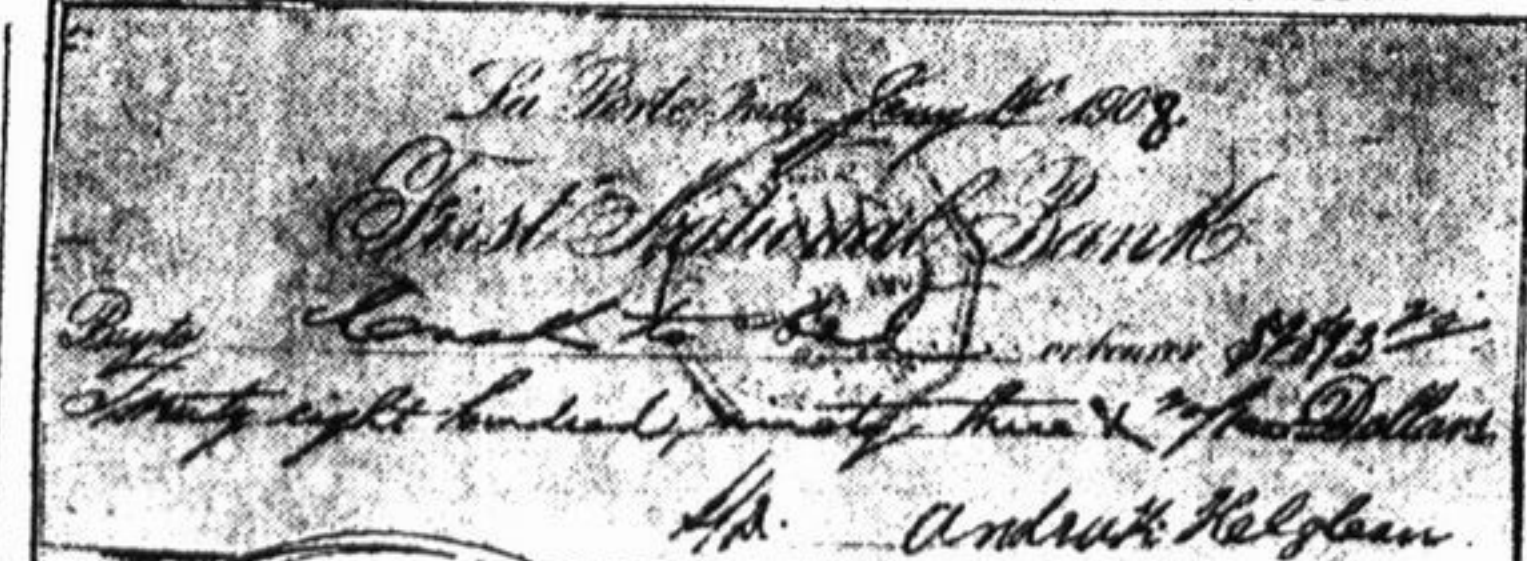 La Porte Ind, Jany 14" 1908.
First National Bank
Pay to or bearer $2893
Twenty eight hundred, ninety three & Dollars
Andrew K. Helgelien.